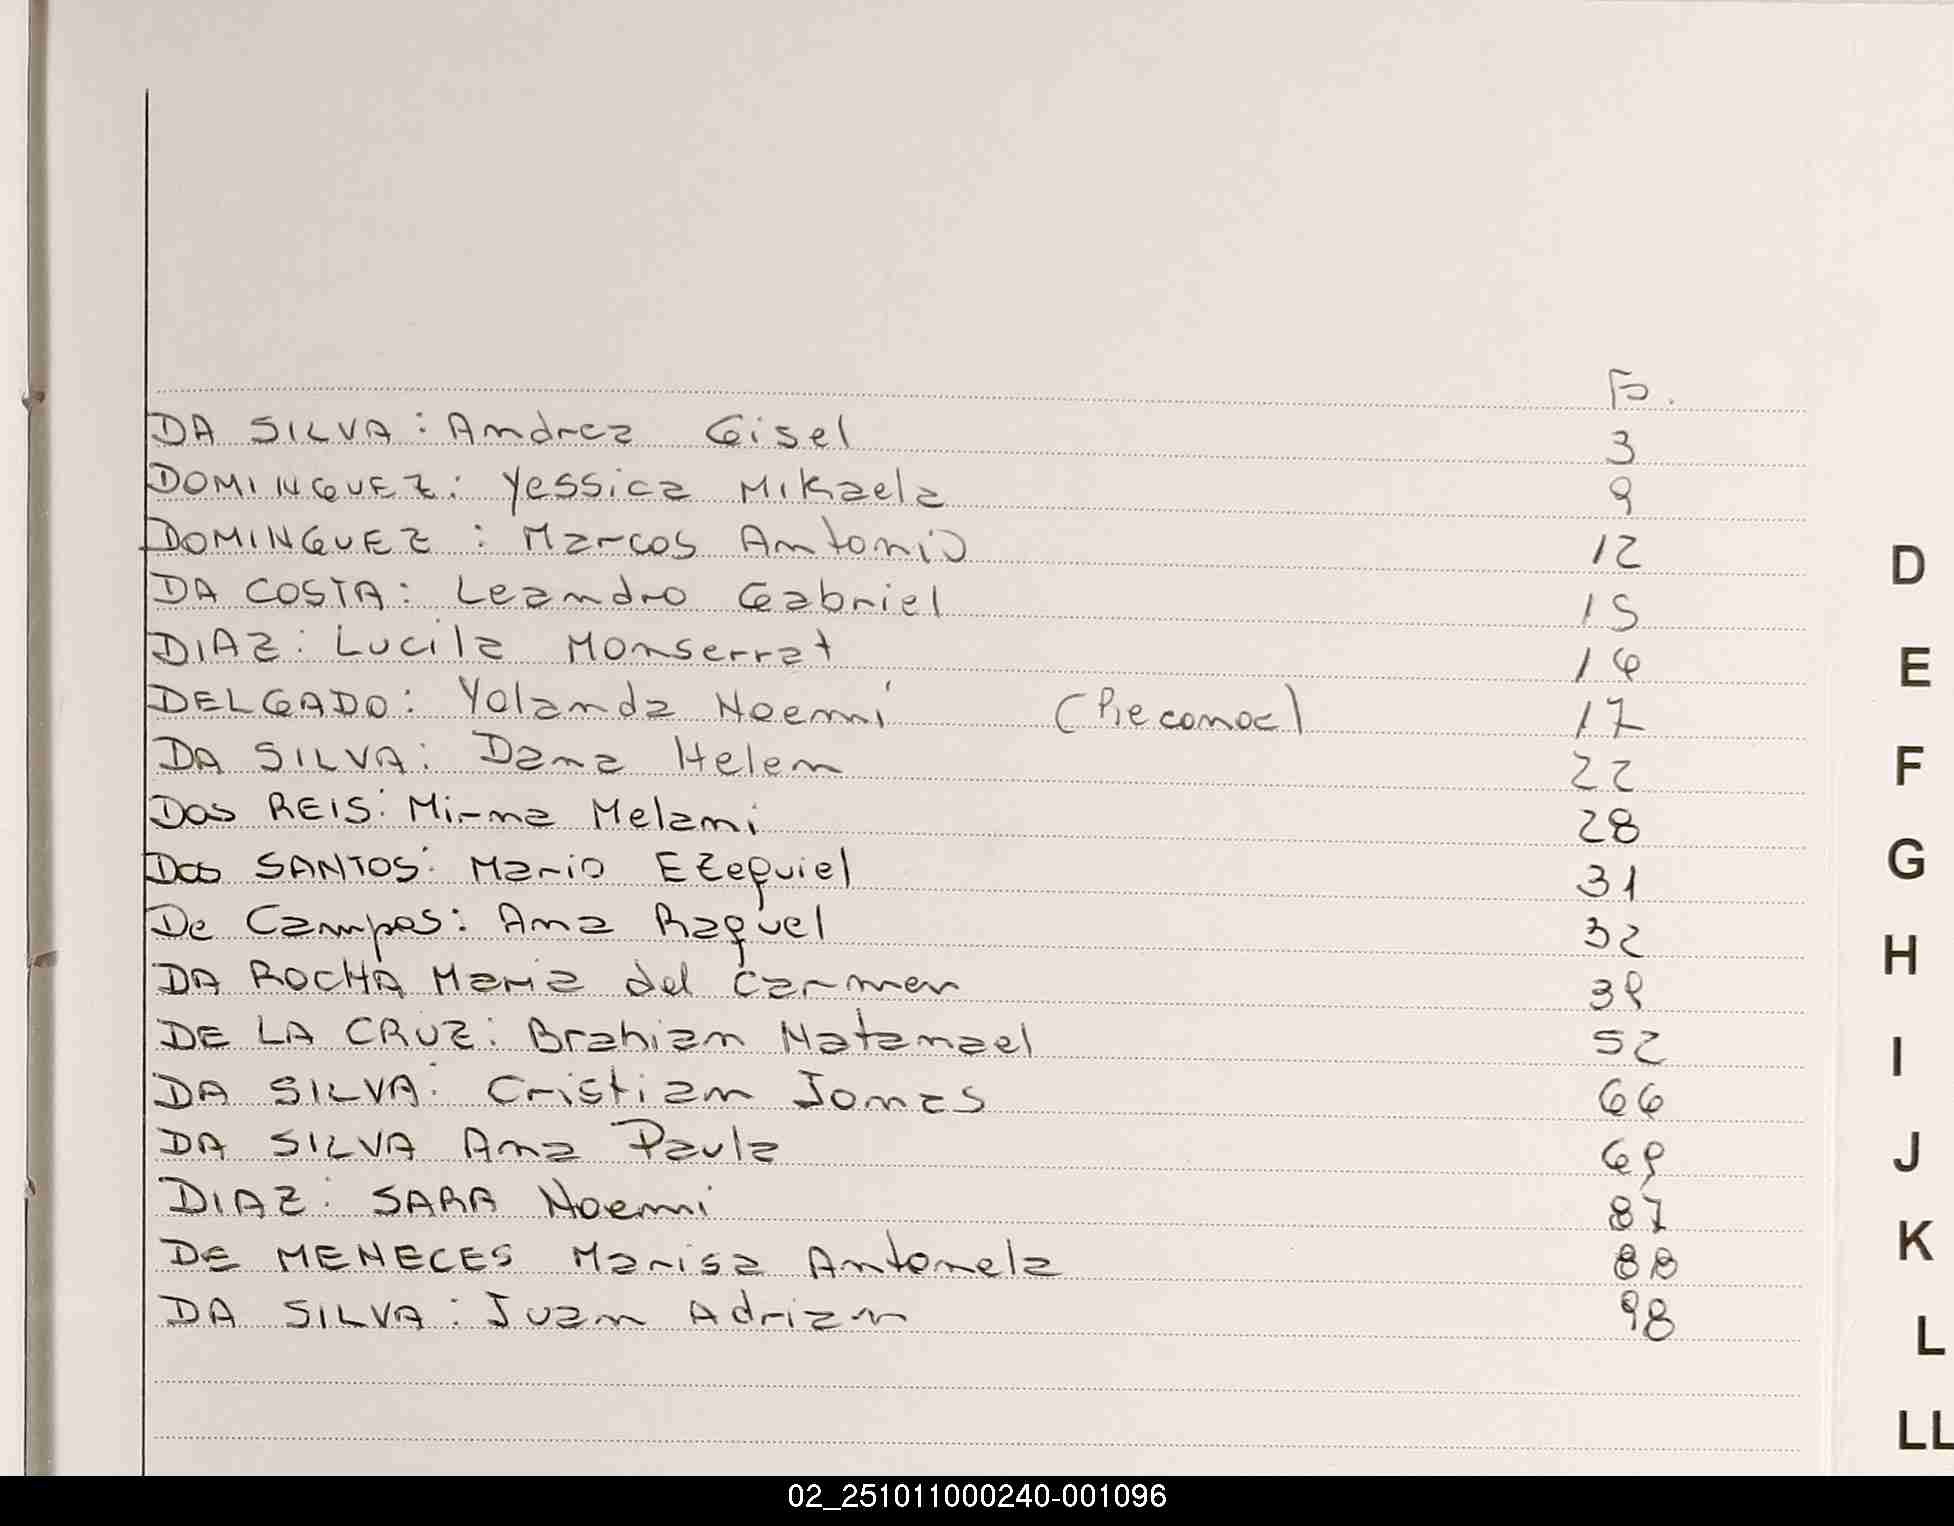 Fo.
DA SILVA: Andrea Gisel 3
DOMINGUEZ: Yessica Mikaela 9
DOMINGUEZ: Marcos Antonio 12
DA COSTA: Leandro Gabriel 15
DIAZ: Lucila Monserrat 16
DELGADO: Yolanda Noemi (Reconoc) 17
DA SILVA: Dana Helen 22
Dos REIS: Mirna Melani 28
Dos SANTOS: Mario Ezequiel 31
De Campos: Ana Raquel 32
DA ROCHA Maria del Carmen 39
DE LA CRUZ: Brahian Natanael 52
DA SILVA: Cristian Jonas 66
DA SILVA Ana Paula 69
DIAZ: SARA Noemi 87
DE MENECES Marisa Antonela 88
DA SILVA: Juan Adrian 98
D
E
F
G
H
I
J
K
L
LL
02_251011000240-001096